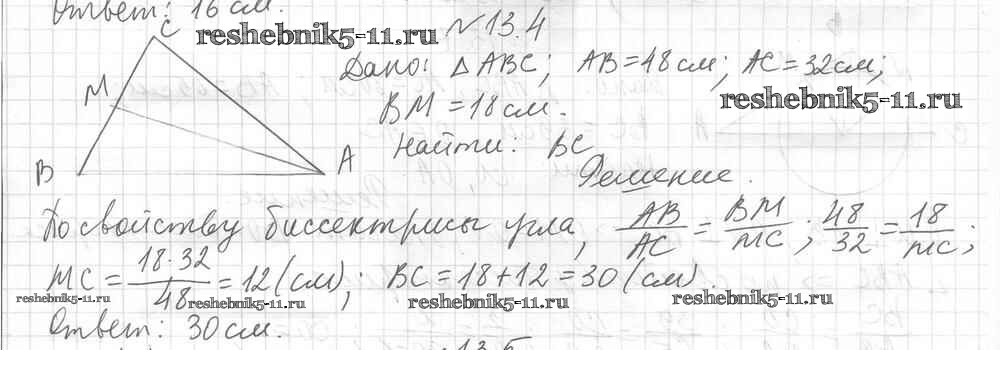 Ответ: 16 см.
reshebnik5-11.ru
№ 13.4
C
Дано: △ABC; AB=48см; AC=32см;
reshebnik5-11.ru
M
BM=18см.
Найти: BC
B
A
Решение.
По свойству биссектрисы угла, AB/AC = BM/MC; 48/32 = 18/MC;
MC = 18·32/48 = 12(см); BC=18+12=30(см).
reshebnik5-11.ru reshebnik5-11.ru reshebnik5-11.ru reshebnik5-11.ru
Ответ: 30см.